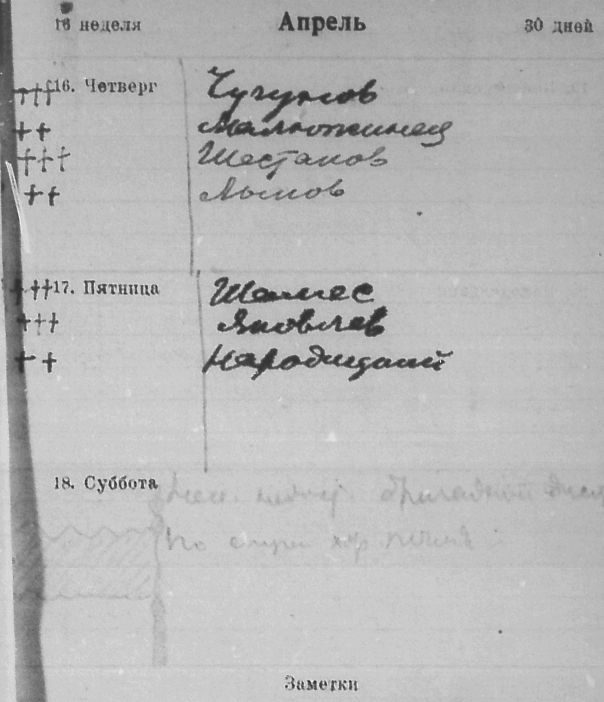 16 неделя Апрель 30 дней
16. Четверг Чугунов
Малюжинец
Шестаков
Лымов
17. Пятница Шамес
Яковлев
Народицкий
18. Суббота
по
Заметки